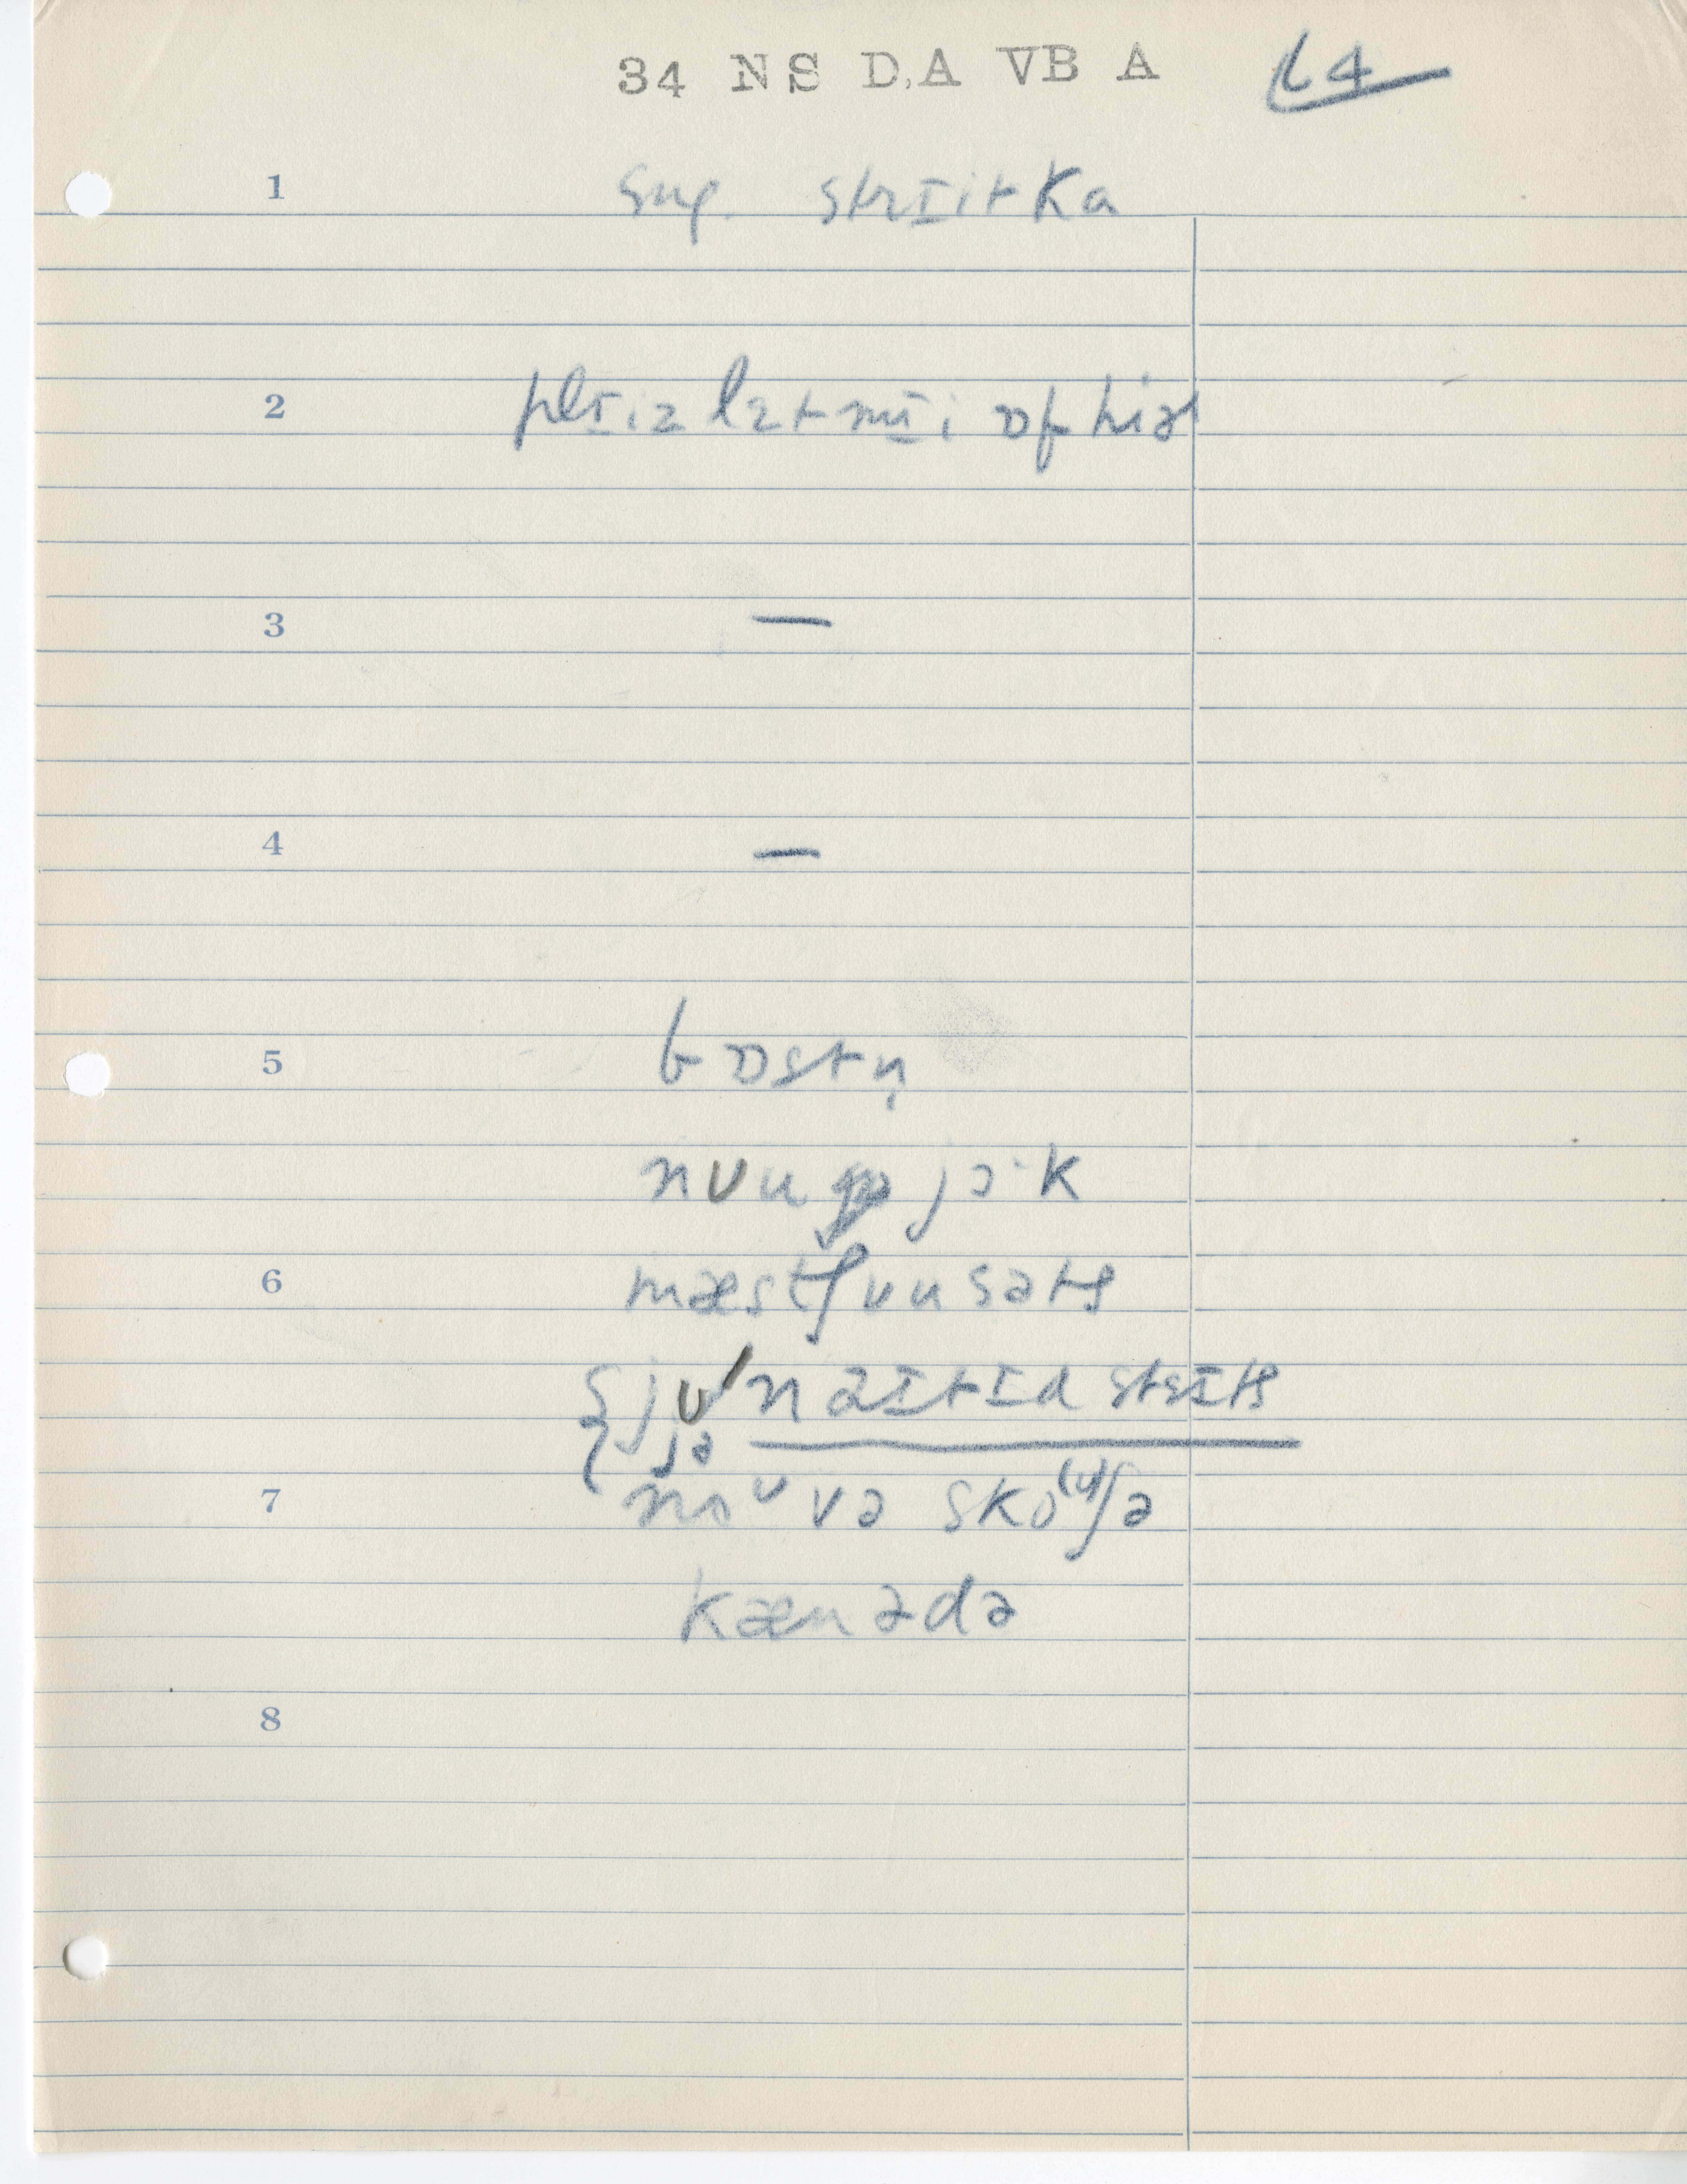 34 NS D,A VB A 64
1 sug. strɪitka
2 plɪiz lɛt mɪi ɒf hiə
3 —
4 —
5 bɒstn̩
nʊu jɔ·k
6 mæstʃuusəts
{jʊ'nəɪtɪd steɪts
jə
7 noᶷ və sko⁽ᶷ⁾ʃə
kænədə
8